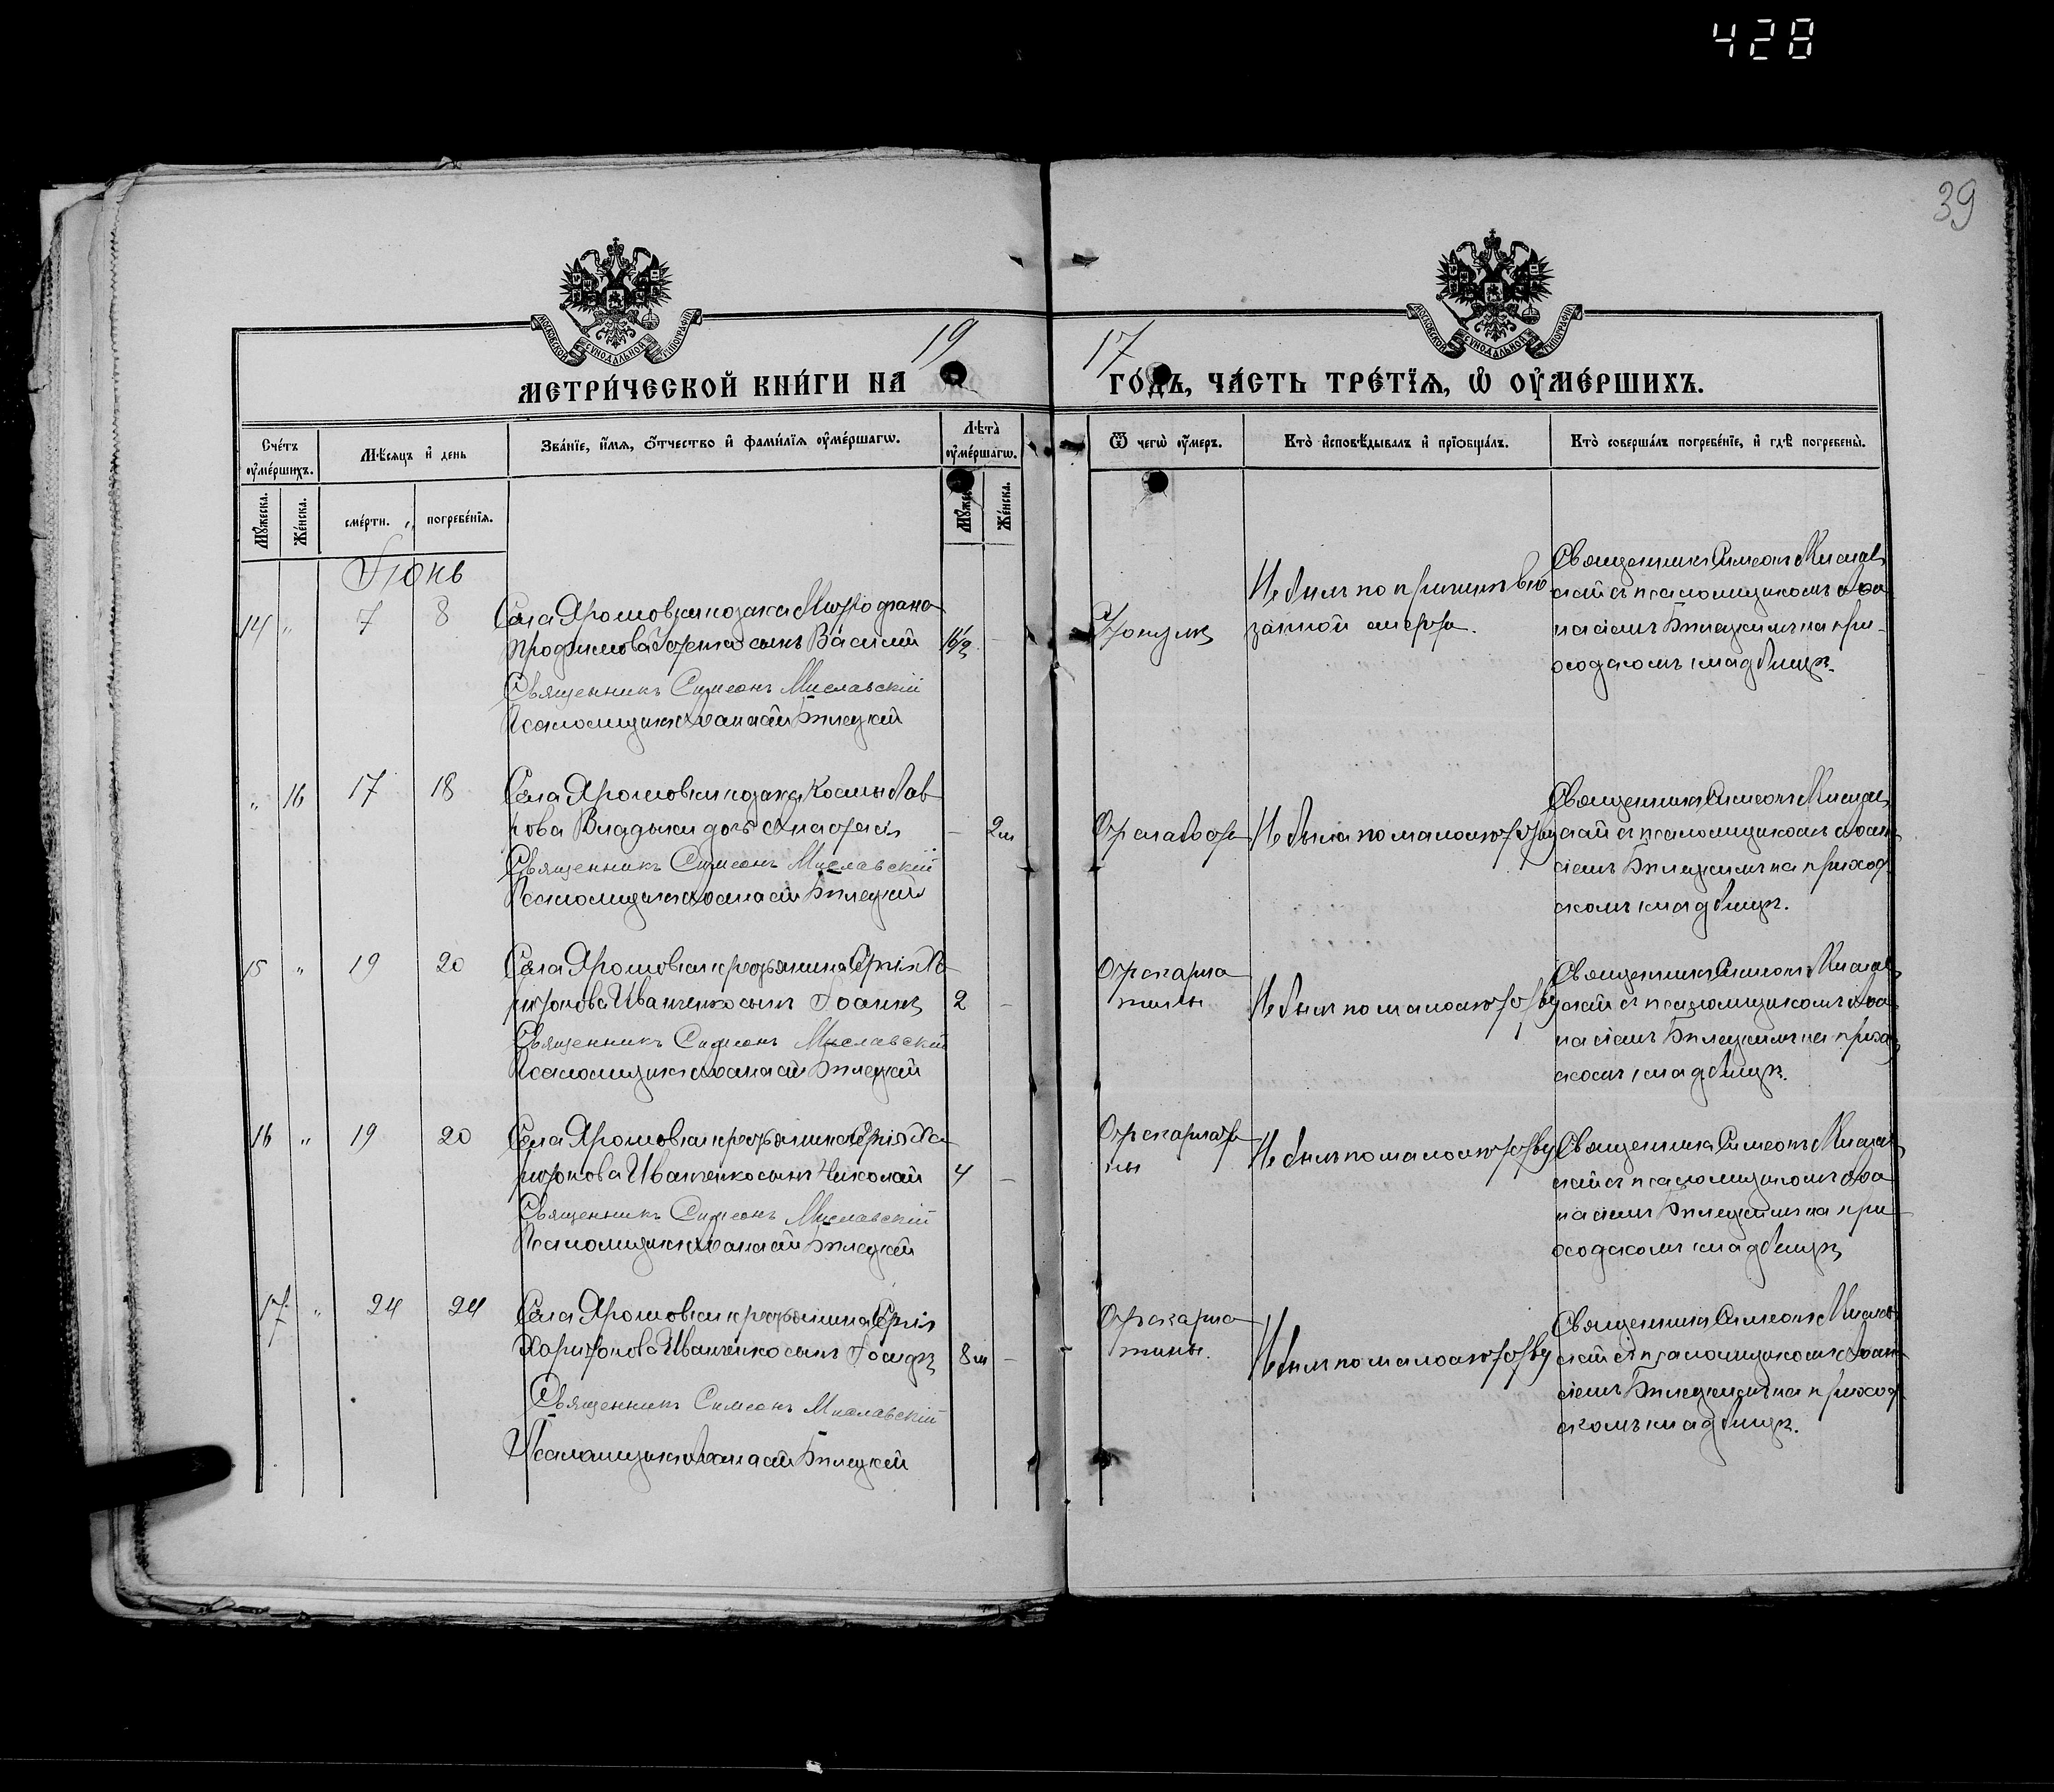 428
39
МОСКОВСКОЙ СѴНОДАЛЬНОЙ ТИПОГРАФІИ
МОСКОВСКОЙ СѴНОДАЛЬНОЙ ТИПОГРАФІИ
19 17
МЕТРИ́ЧЕСКОЙ КНИ́ГИ НА ГО́ДЪ, ЧА́СТЬ ТРЕ́ТІѦ, Ѡ ОУ҆МЕ́РШИХЪ.
Сче́тъ оу҆ме́ршихъ.
Мѣ́сѧцъ и҆ день
Зва́нїе, и҆́мѧ, ѻ҆́тчество и҆ фами́лїѧ оу҆ме́ршагѡ.
Лѣта̀ оу҆ме́ршагѡ.
Ѿ чегѡ̀ оу҆́меръ.
Кто̀ и҆сповѣ́дывалъ и҆ прїѡбща́лъ.
Кто̀ соверша́лъ погребе́нїе, и҆ гдѣ̀ погребены̀.
Мꙋ́жеска.
Же́нска.
сме́рти.
погребе́нїѧ.
Мꙋ́жеска.
Же́нска.
Іюнь
14 " 7 8
Села Ярошовки козака
сынъ Василій
16½ -
Священникъ Симеонъ Миславскій
Псаломщикъ Аѳанасій Бѣлецкій
Утонулъ
Не былъ по причинѣ вне
запной смерти.
Священникъ Симеонъ Мислав
скій съ псаломщикомъ Аѳа
насіемъ Бѣлецкимъ на при-
ходскомъ кладбищѣ.
" 16 17 18
Села Ярошовки козака Космы Лав
рова Владыки дочь Анастасія
- 2 м
Священникъ Симеонъ Миславскій
Псаломщикъ Аѳанасій Бѣлецкій
Отъ слабости
Не была по малолѣтству
Священникъ Симеонъ Мислав
скій съ псаломщикомъ Аѳана
сіемъ Бѣлецкимъ на приход
скомъ кладбищѣ.
15 " 19 20
Села Ярошовки крестьянина Сергія Ха
ритонова Иванченко сынъ Іоаннъ
2 -
Священникъ Симеонъ Миславскій
Псаломщикъ Аѳанасій Бѣлецкій
Отъ скарла
тины
Не былъ по малолѣтству
Священникъ Симеонъ Мислав
скій съ псаломщикомъ Аѳа
насіемъ Бѣлецкимъ на приход
скомъ кладбищѣ.
16 " 19 20
Села Ярошовки крестьянина Сергія Ха
ритонова Иванченко сынъ Николай
4 -
Священникъ Симеонъ Миславскій
Псаломщикъ Аѳанасій Бѣлецкій
Отъ скарлати
ны
Не былъ по малолѣтству
Священникъ Симеонъ Мислав
скій съ псаломщикомъ Аѳа
насіемъ Бѣлецкимъ на при
ходскомъ кладбищѣ
17 " 24 24
Села Ярошовки крестьянина Сергія
Харитонова Иванченко сынъ
8 м -
Священникъ Симеонъ Миславскій
Псаломщикъ Аѳанасій Бѣлецкій
Отъ скарла
тины.
Не былъ по малолѣтству
Священникъ Симеонъ Мислав
скій съ псаломщикомъ Аѳана
сіемъ Бѣлецкимъ на приход
скомъ кладбищѣ.